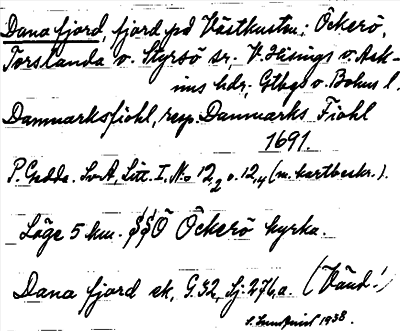 Dana fjord, fjord på Västkusten; Öckerö,
Torslanda o. Styrsö sr; V. Hisings o. Ask-
ims hdr; Gtbgs o. Bohus l.
Danmarksfiohl, resp. Danmarks Fiohl
1691.
P. Gedda. SvA, Litt. I. No 12,2 o. 12,4 (m. kartbeskr.).
Läge 5 km. SSÖ Öckerö kyrka.
Dana fjord ek, G.32, Sj. 276,a. (Vänd!)
1938.